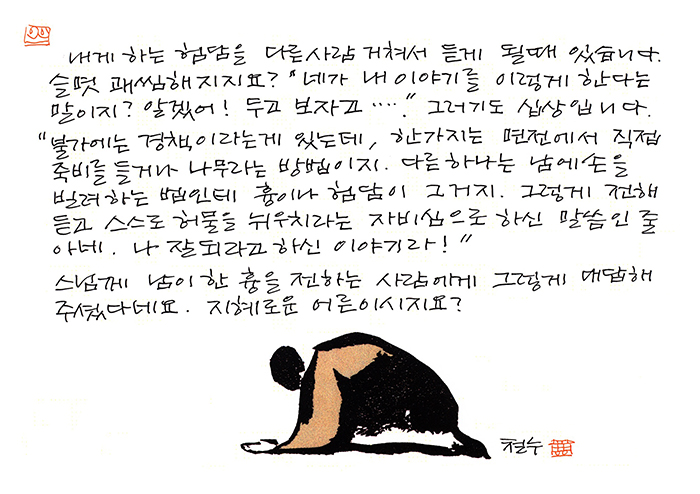 내게 하는 험담을 다른사람 거쳐서 듣게 될때 있습니다.
슬몃 괘씸해지지요? "네가 내 이야기를 이렇게 한다는
말이지? 알겠어! 두고 보자고 ‥‥." 그러기도 십상입니다.
"불가에는 경책이라는게 있는데, 한가지는 면전에서 직접
죽비를 들거나 나무라는 방법이지. 다른 하나는 남에 손을
빌려하는 법인데 흉이나 험담이 그거지. 그렇게 전해
듣고 스스로 허물을 뉘우치라는 자비심으로 하신 말씀인 줄
아네. 나 잘되라고 하신 이야기라!"
스님께 남이 한 흉을 전하는 사람에게 그렇게 대답해
주셨다네요. 지혜로운 어른이시지요?
철수